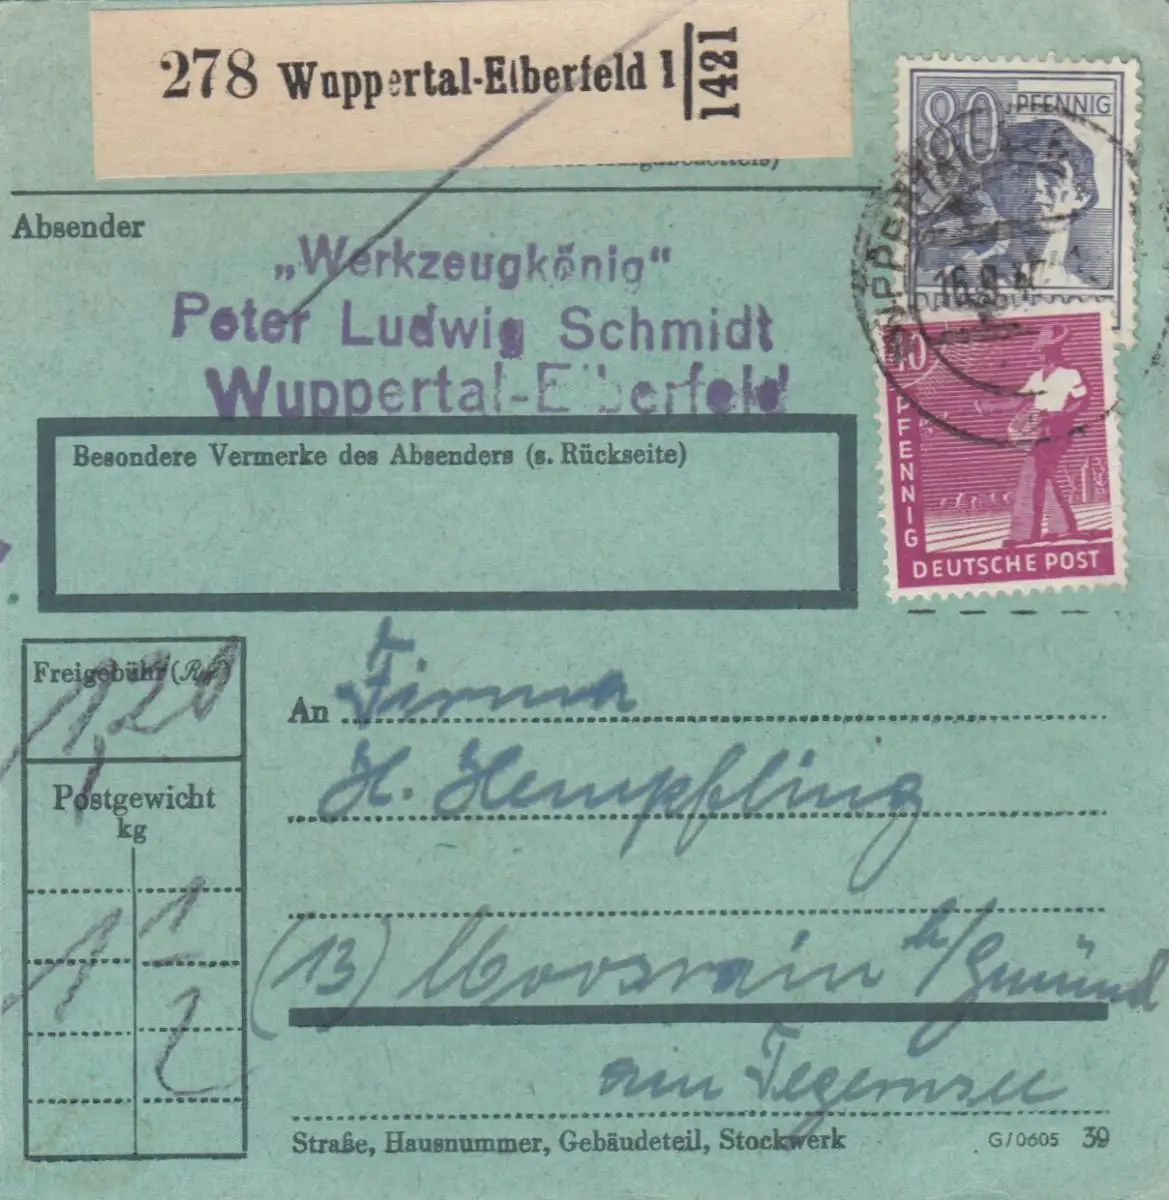 278 Wuppertal-Elberfeld 1 1421
80 PFENNIG
Absender
„Werkzeugkönig“
Peter Ludwig Schmidt
Wuppertal-Elberfeld
WUPPERTAL
16.9.47
40 PFENNIG
DEUTSCHE POST
Besondere Vermerke des Absenders (s. Rückseite)
Freigebühr (RM)
1,20
Postgewicht
kg
1 1
2
An Firma
H. Hempfling
(13) Moosrain b/Gmünd
am Tegernsee
Straße, Hausnummer, Gebäudeteil, Stockwerk
G/0605 39